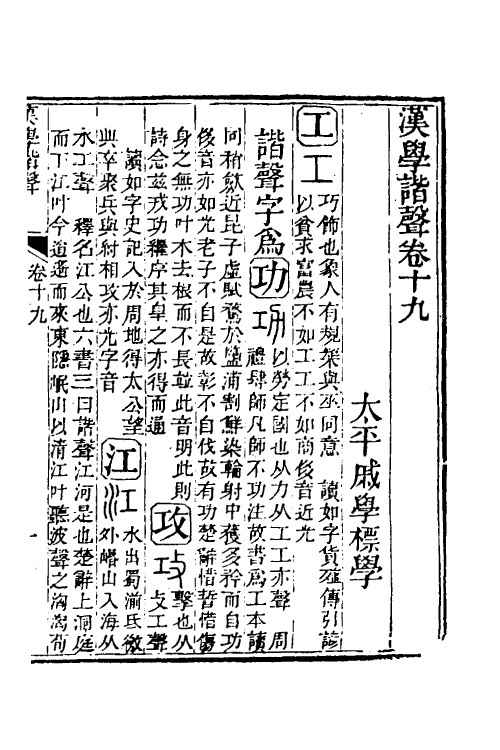 漢學諧聲卷十九
太平戚學標學
工 工 巧飾也象人有規榘與巫同意 讀如字貨殖傳引諺
以貧求富農不如工工不如商俊音近光
諧聲字爲 功 功 以勞定國也从力从工工亦聲 周
禮肆師凡師不功注故書爲工本讀
同稍歛近昆子虛賦鶩於鹽浦割鮮染輪射中獲多矜而自功
俊音亦如光老子不自是故彰不自伐故有功楚辭惜誓惜傷
身之無功叶木去根而不長竝此音明此則
詩念兹戎功繼序其皇之亦得而通 攻 攻 擊也从
攴工聲
讀如字史記入於周地得太公望
與卒聚兵與紂相攻亦光字音 江 江 水出蜀湔氐徼
外崏山入海从
水工聲 釋名江公也六書三曰諧聲江河是也楚辭上洞庭
而下江叶今逍遙而來東隱岷山以清江叶聽波聲之洶洶荀
漢學諧聲
卷十九
一